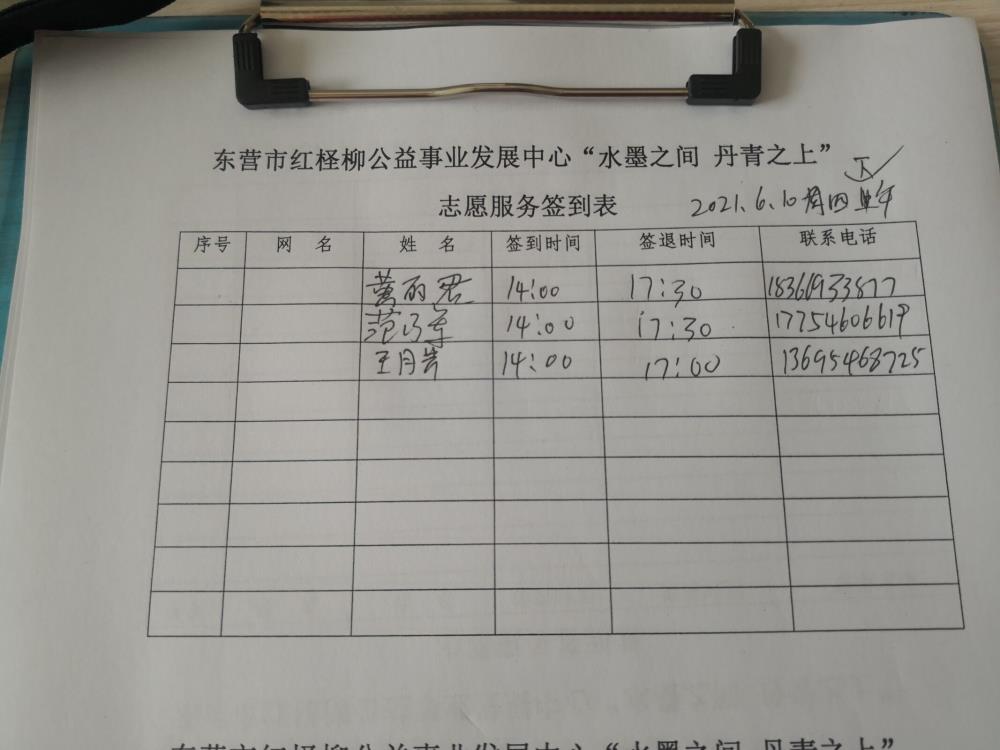 东营市红柽柳公益事业发展中心“水墨之间 丹青之上”
下
志愿服务签到表 2021.6.10 周四 午
序号 网 名 姓 名 签到时间 签退时间 联系电话
黄丽君 14:00 17:30
范 14:00 17:30 17754606619
王月 14:00 17:00 13695468725
东营市红柽柳公益事业发展中心“水墨之间 丹青之上”